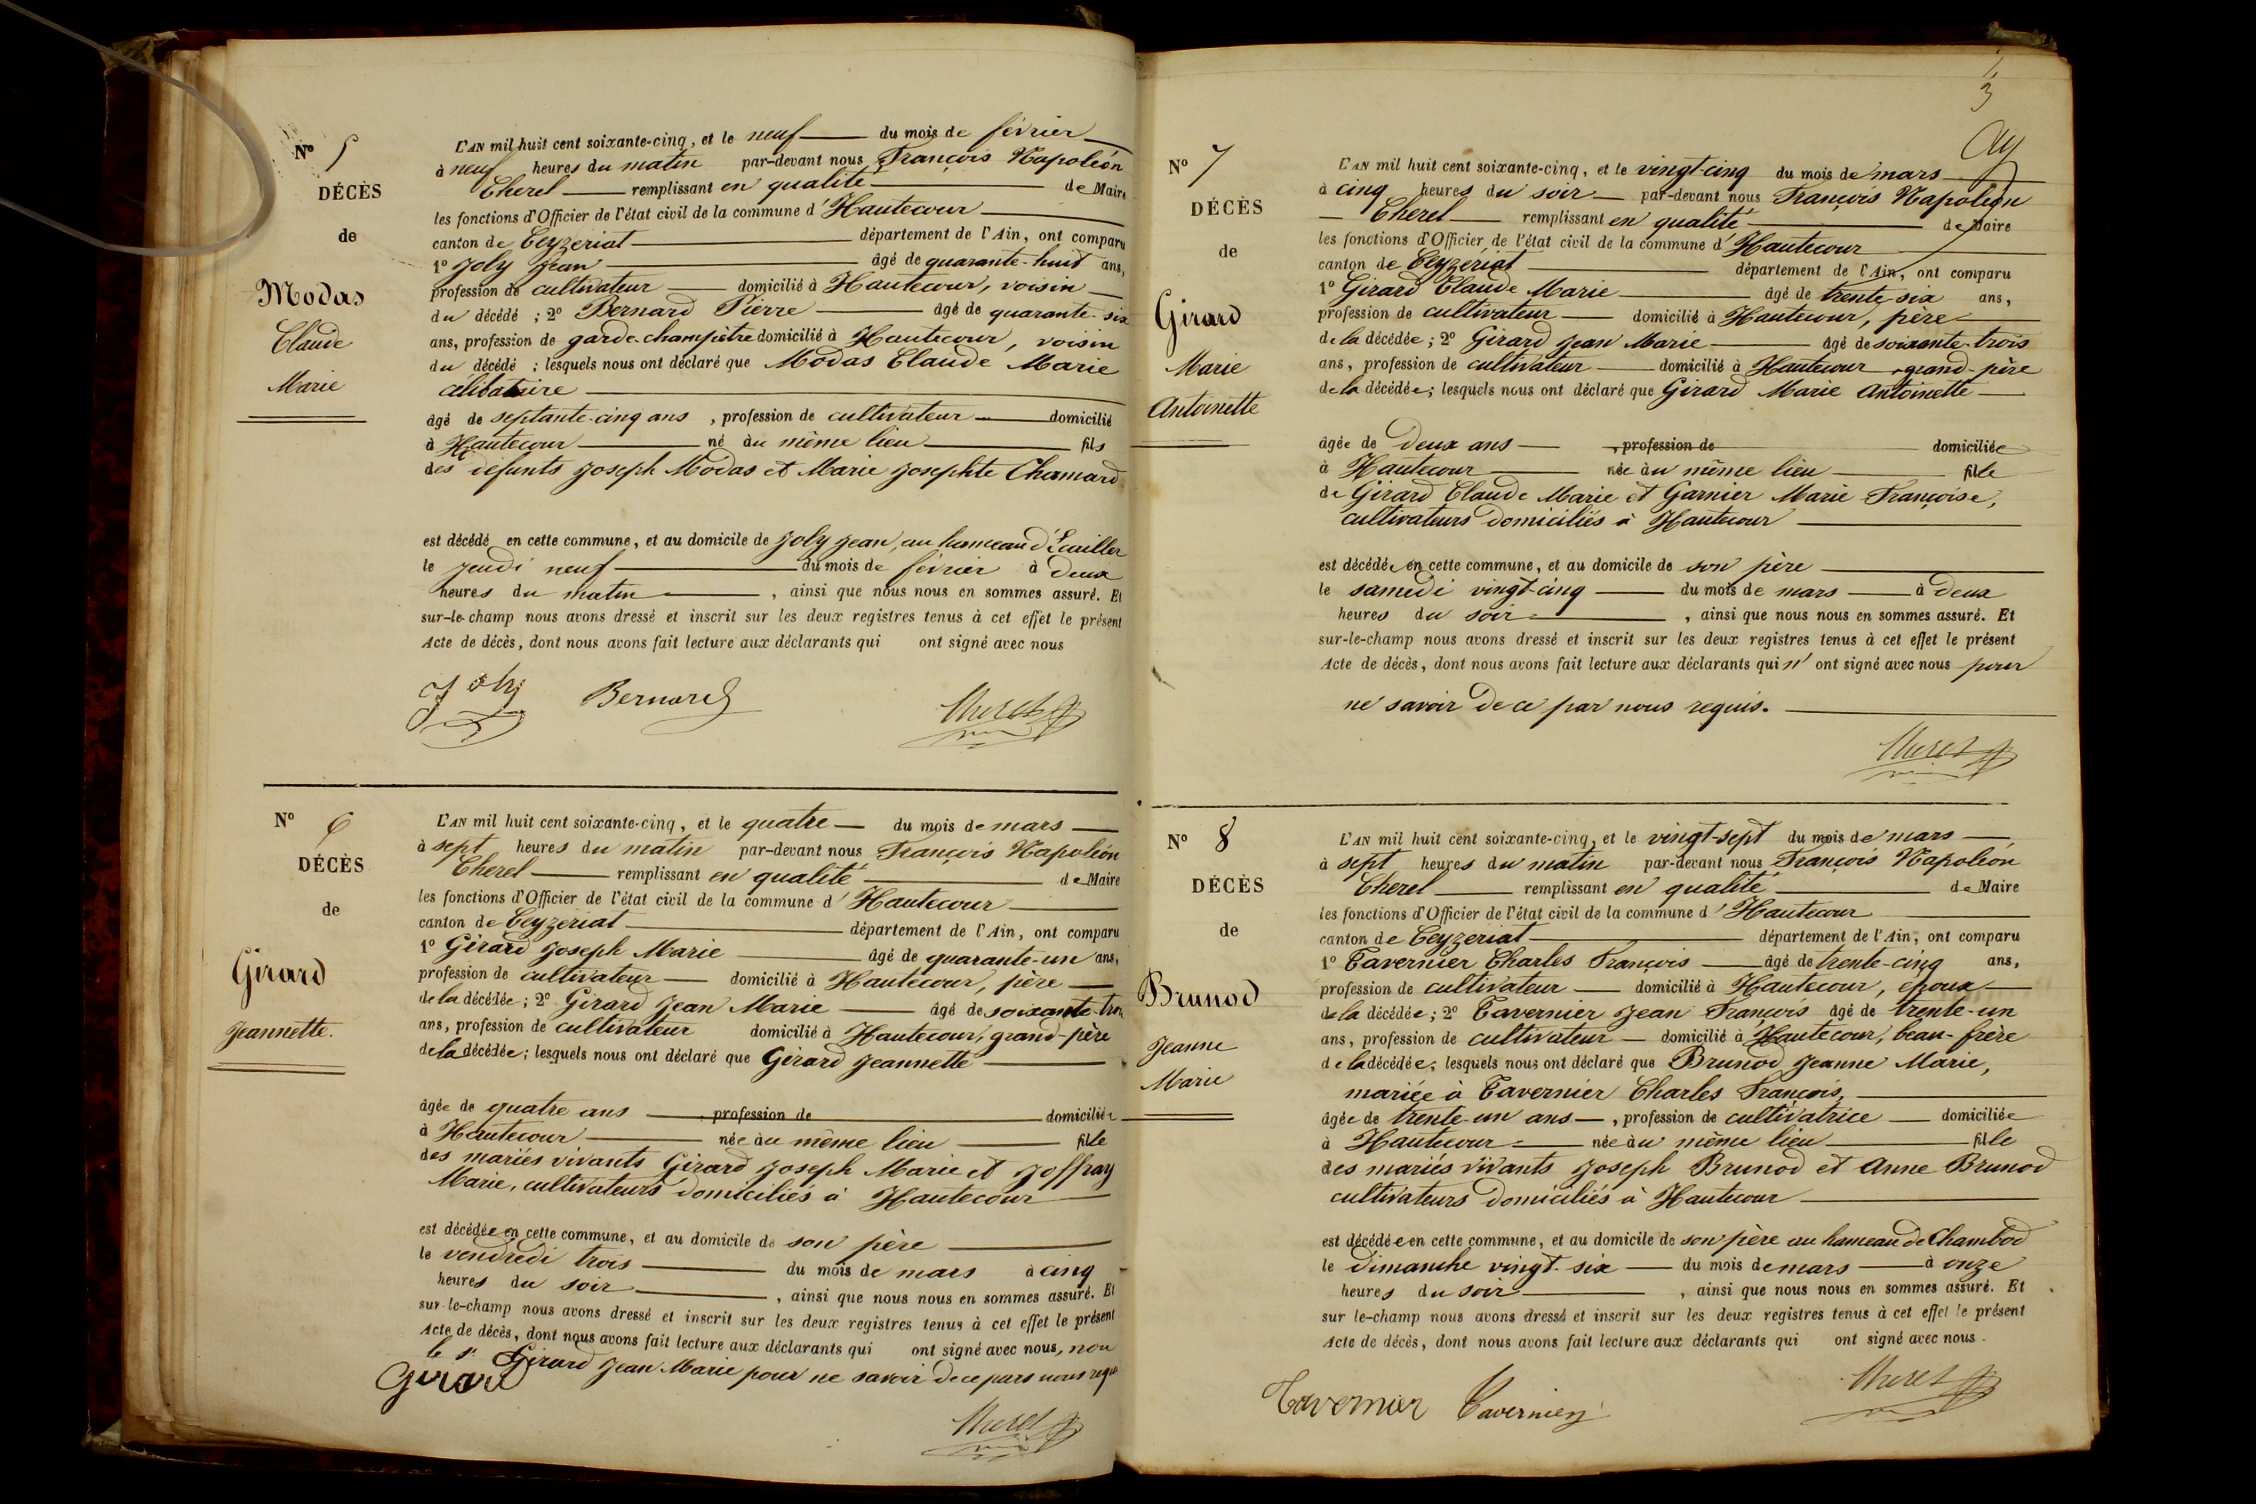 N° 5
DÉCÈS
de
Modas
Claude
Marie
L'AN mil huit cent soixante-cinq, et le neuf du mois de février
à neuf heures du matin par-devant nous François Napoléon
Cherel remplissant en qualité de Maire
les fonctions d'Officier de l'état civil de la commune d'Hautecour
canton de Ceyzeriat département de l'Ain, ont comparu
1° Joly Jean âgé de quarante-huit ans,
profession de cultivateur domicilié à Hautecour, voisin
du décédé ; 2° Bernard Pierre âgé de quarante-six
ans, profession de garde-champêtre domicilié à Hautecour, voisin
du décédé ; lesquels nous ont déclaré que Modas Claude Marie
célibataire
âgé de septante-cinq ans, profession de cultivateur domicilié
à Hautecour né au même lieu fils
des défunts Joseph Modas et Marie Josephte Chamard
est décédé en cette commune, et au domicile de Joly Jean, au hameau d'Écailler
le jeudi neuf du mois de février à deux
heures du matin, ainsi que nous nous en sommes assuré. Et
sur-le-champ nous avons dressé et inscrit sur les deux registres tenus à cet effet le présent
Acte de décès, dont nous avons fait lecture aux déclarants qui ont signé avec nous
Joly Bernard Cherel
N° 6
DÉCÈS
de
Girard
Jeannette.
L'AN mil huit cent soixante-cinq, et le quatre du mois de mars
à sept heures du matin par-devant nous François Napoléon
Cherel remplissant en qualité de Maire
les fonctions d'Officier de l'état civil de la commune d'Hautecour
canton de Ceyzeriat département de l'Ain, ont comparu
1° Girard Joseph Marie âgé de quarante-un ans,
profession de cultivateur domicilié à Hautecour, père
de la décédée ; 2° Girard Jean Marie âgé de soixante-trois
ans, profession de cultivateur domicilié à Hautecour, grand-père
de la décédée ; lesquels nous ont déclaré que Girard Jeannette
âgée de quatre ans, profession de domiciliée
à Hautecour née au même lieu fille
des mariés vivants Girard Joseph Marie et Joffray
Marie, cultivateurs domiciliés à Hautecour
est décédée en cette commune, et au domicile de son père
le vendredi trois du mois de mars à cinq
heures du soir, ainsi que nous nous en sommes assuré. Et
sur-le-champ nous avons dressé et inscrit sur les deux registres tenus à cet effet le présent
Acte de décès, dont nous avons fait lecture aux déclarants qui ont signé avec nous, non
le sr Girard Jean Marie pour ne savoir de ce par nous requis
Girard
Cherel
3
N° 7
DÉCÈS
de
Girard
Marie
Antoinette
L'AN mil huit cent soixante-cinq, et le vingt-cinq du mois de mars
à cinq heures du soir par-devant nous François Napoléon
Cherel remplissant en qualité de Maire
les fonctions d'Officier de l'état civil de la commune d'Hautecour
canton de Ceyzeriat département de l'Ain, ont comparu
1° Girard Claude Marie âgé de trente-six ans,
profession de cultivateur domicilié à Hautecour, père
de la décédée ; 2° Girard Jean Marie âgé de soixante-trois
ans, profession de cultivateur domicilié à Hautecour, grand-père
de la décédée ; lesquels nous ont déclaré que Girard Marie Antoinette
âgée de deux ans, profession de domiciliée
à Hautecour née au même lieu fille
de Girard Claude Marie et Garnier Marie Françoise,
cultivateurs domiciliés à Hautecour
est décédée en cette commune, et au domicile de son père
le samedi vingt-cinq du mois de mars à deux
heures du soir, ainsi que nous nous en sommes assuré. Et
sur-le-champ nous avons dressé et inscrit sur les deux registres tenus à cet effet le présent
Acte de décès, dont nous avons fait lecture aux déclarants qui n'ont signé avec nous pour
ne savoir de ce par nous requis.
Cherel
N° 8
DÉCÈS
de
Brunod
Jeanne
Marie
L'AN mil huit cent soixante-cinq, et le vingt-sept du mois de mars
à sept heures du matin par-devant nous François Napoléon
Cherel remplissant en qualité de Maire
les fonctions d'Officier de l'état civil de la commune d'Hautecour
canton de Ceyzeriat département de l'Ain, ont comparu
1° Tavernier Charles François âgé de trente-cinq ans,
profession de cultivateur domicilié à Hautecour, époux
de la décédée ; 2° Tavernier Jean François âgé de trente-un
ans, profession de cultivateur domicilié à Hautecour, beau-frère
de la décédée ; lesquels nous ont déclaré que Brunod Jeanne Marie,
mariée à Tavernier Charles François,
âgée de trente-un ans, profession de cultivatrice domiciliée
à Hautecour née au même lieu fille
des mariés vivants Joseph Brunod et Anne Brunod
cultivateurs domiciliés à Hautecour
est décédée en cette commune, et au domicile de son père au hameau de Chambod
le dimanche vingt-six du mois de mars à onze
heures du soir, ainsi que nous nous en sommes assuré. Et
sur le-champ nous avons dressé et inscrit sur les deux registres tenus à cet effet le présent
Acte de décès, dont nous avons fait lecture aux déclarants qui ont signé avec nous.
Tavernier Tavernier Cherel